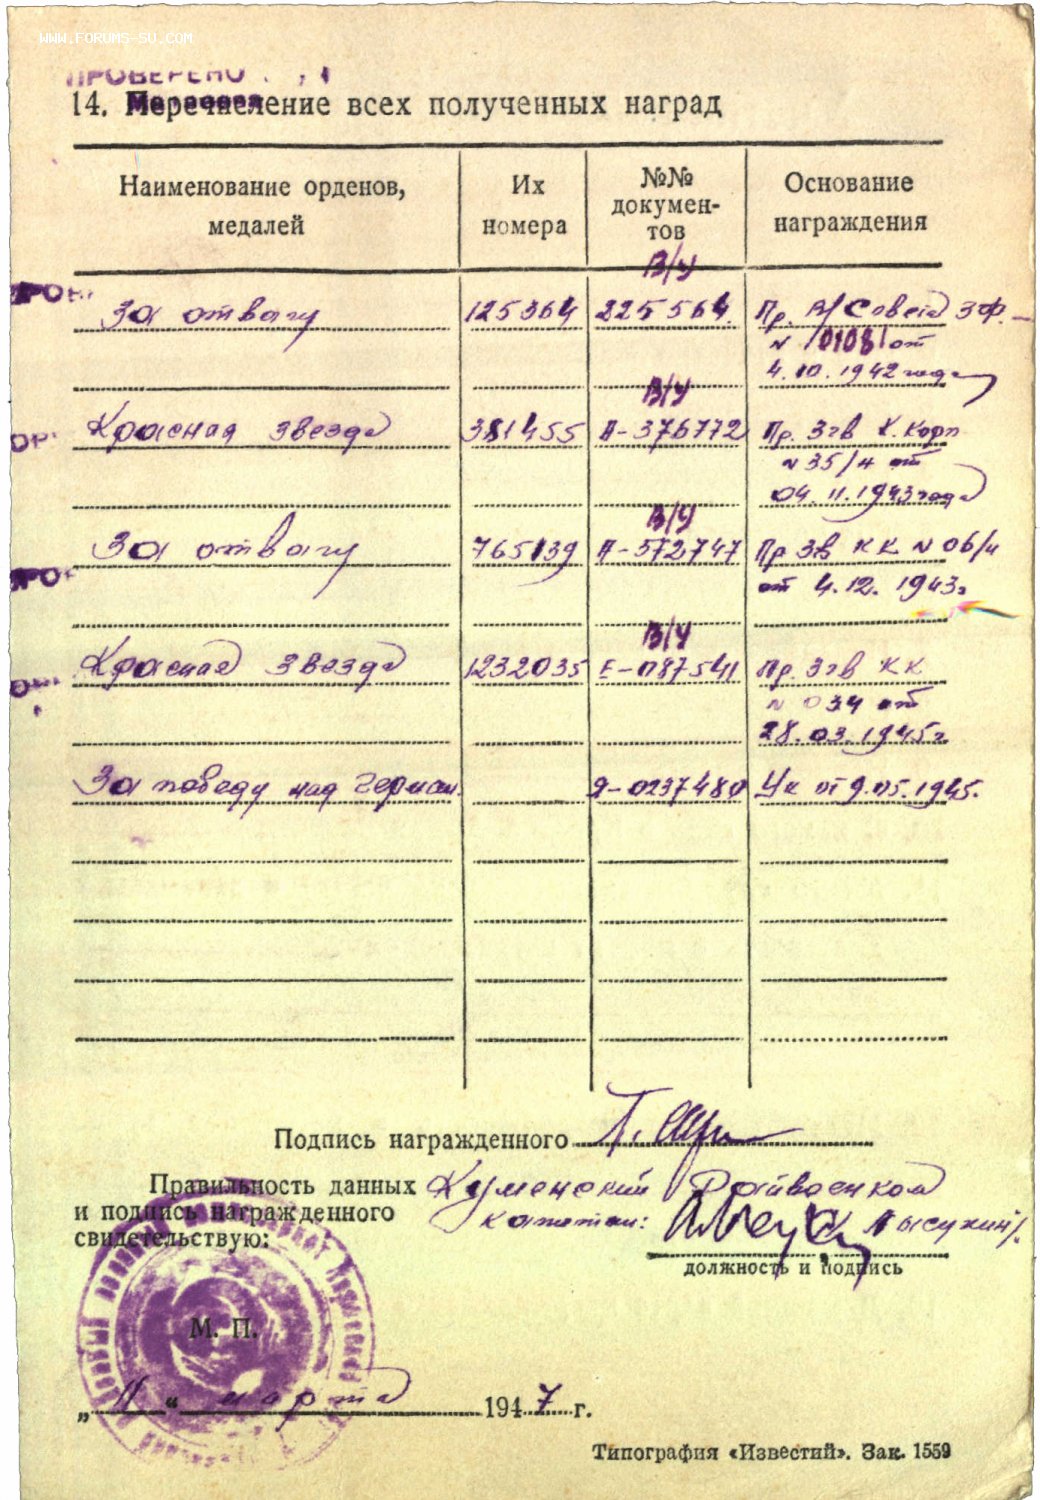 WWW.FORUMS-SU.COM
ПРОВЕРЕНО
14. Перечисление всех полученных наград
Наименование орденов, медалей
Их номера
№№ докумен-
тов
Основание награждения
В/У
За отвагу 125364 225564 Пр. В/Совета ЗФ.
N 0108 от
4.10.1942 года
В/У
Красная звезда 381455 А-376772 Пр. 3гв К. Корп
N 35/н от
04.11.1943 года
В/У
За отвагу 765139 А-572747 Пр 3гв КК N 06/н
от 4.12.1943г
В/У
Красная звезда 1232035 Е-087541 Пр. 3гв КК
N 034 от
28.03.1945г
За победу над Герман. Я-0237480 Ук от 9.05.1945.
Подпись награжденного
Правильность данных
и подпись награжденного
свидетельствую:
Куменский Райвоенком
капитан: Лысухин/.
должность и подпись
М. П.
„ 11 “ марта 1947 г.
Типография «Известий». Зак. 1559